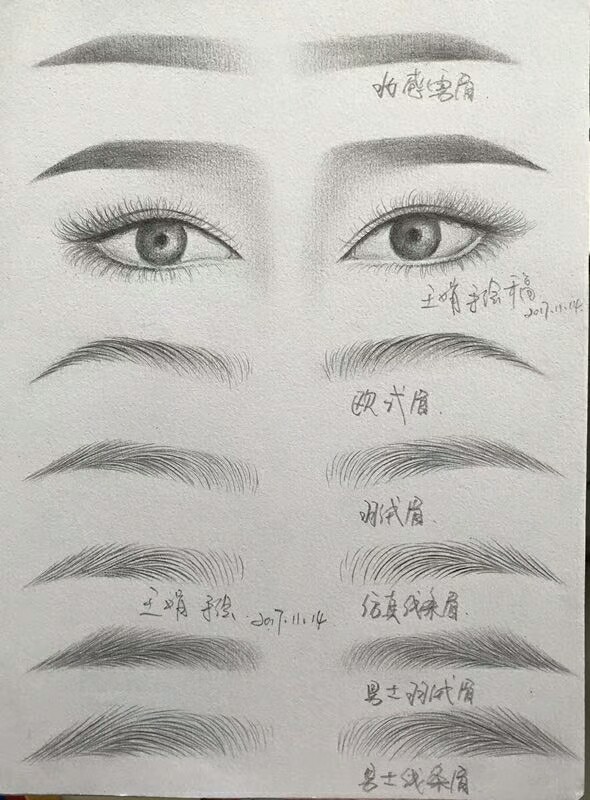 妆感雾眉.
王娟手绘手稿
2017.11.14.
欧式眉.
羽绒眉.
仿真线条眉.
王娟 手绘. 2017.11.14
男士羽绒眉
男士线条眉